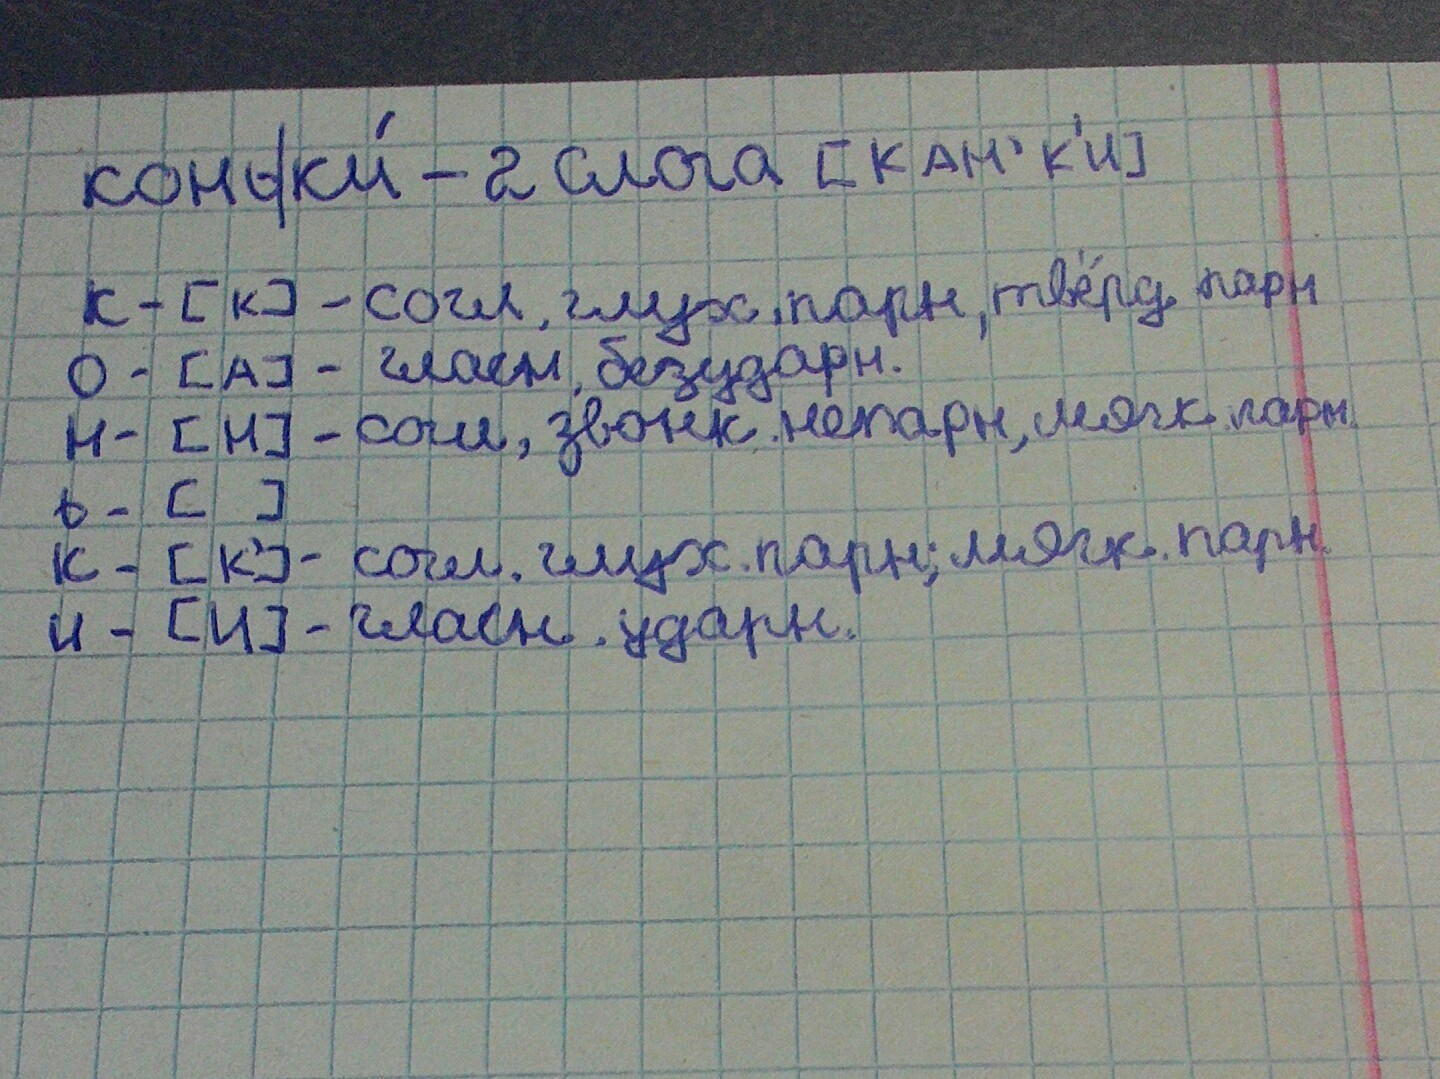 конь|ки́ - 2 слога [КАН' К'И]
К - [К] - согл, глух. парн, твёрд парн
О - [А] - гласн, безударн.
Н - [Н] - согл, звонк. непарн, мягк. парн.
ь - [ ]
К - [К'] - согл. глух. парн; мягк. парн.
И - [И] - гласн. ударн.